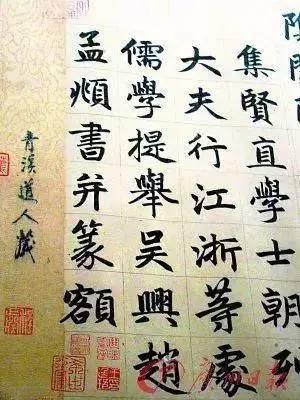 集賢直學士朝列
大夫行江浙等處
儒學提舉吳興趙
孟頫書并篆額
青溪道人藏
广州日报